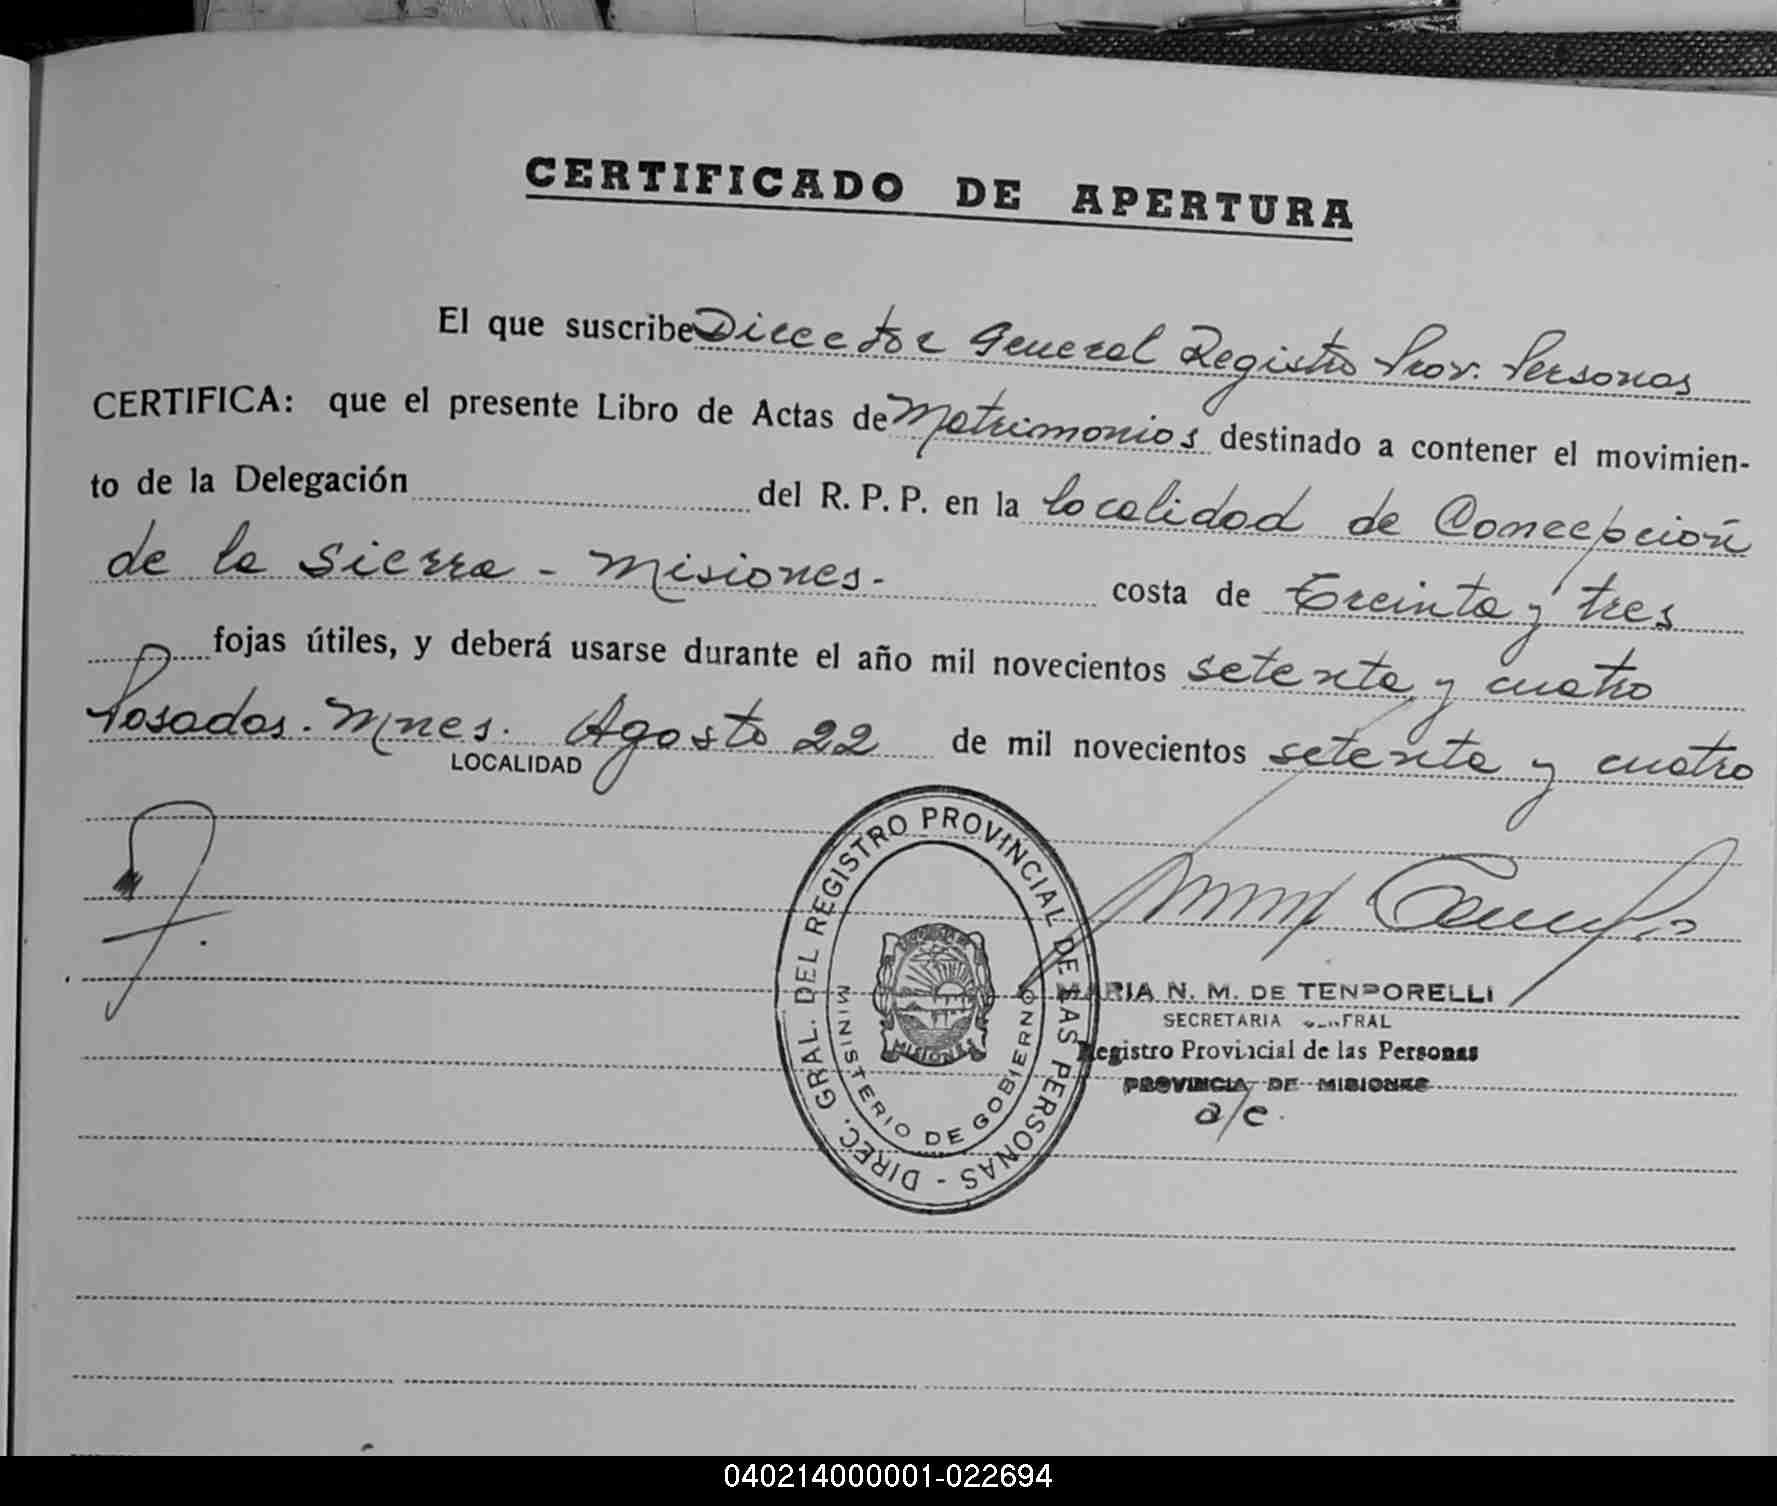 CERTIFICADO DE APERTURA
El que suscribe Director General Registro Prov. Personas
CERTIFICA: que el presente Libro de Actas de Matrimonios destinado a contener el movimien-
to de la Delegación del R. P. P. en la localidad de Concepción
de la Sierra - Misiones.- costa de Treinta y tres
fojas útiles, y deberá usarse durante el año mil novecientos setenta y cuatro
Posadas. Mnes. Agosto 22 de mil novecientos setenta y cuatro
LOCALIDAD
DIREC. GRAL. DEL REGISTRO PROVINCIAL DE LAS PERSONAS -
MINISTERIO DE GOBIERNO
MISIONES
MARIA N. M. DE TEMPORELLI
SECRETARIA GENERAL
Registro Provincial de las Personas
PROVINCIA DE MISIONES
a/c.
040214000001-022694